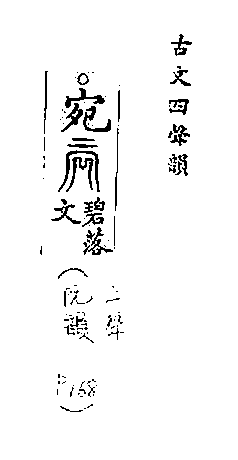 古文四聲韻
宛
碧落文
上聲
(阮韻
P168)